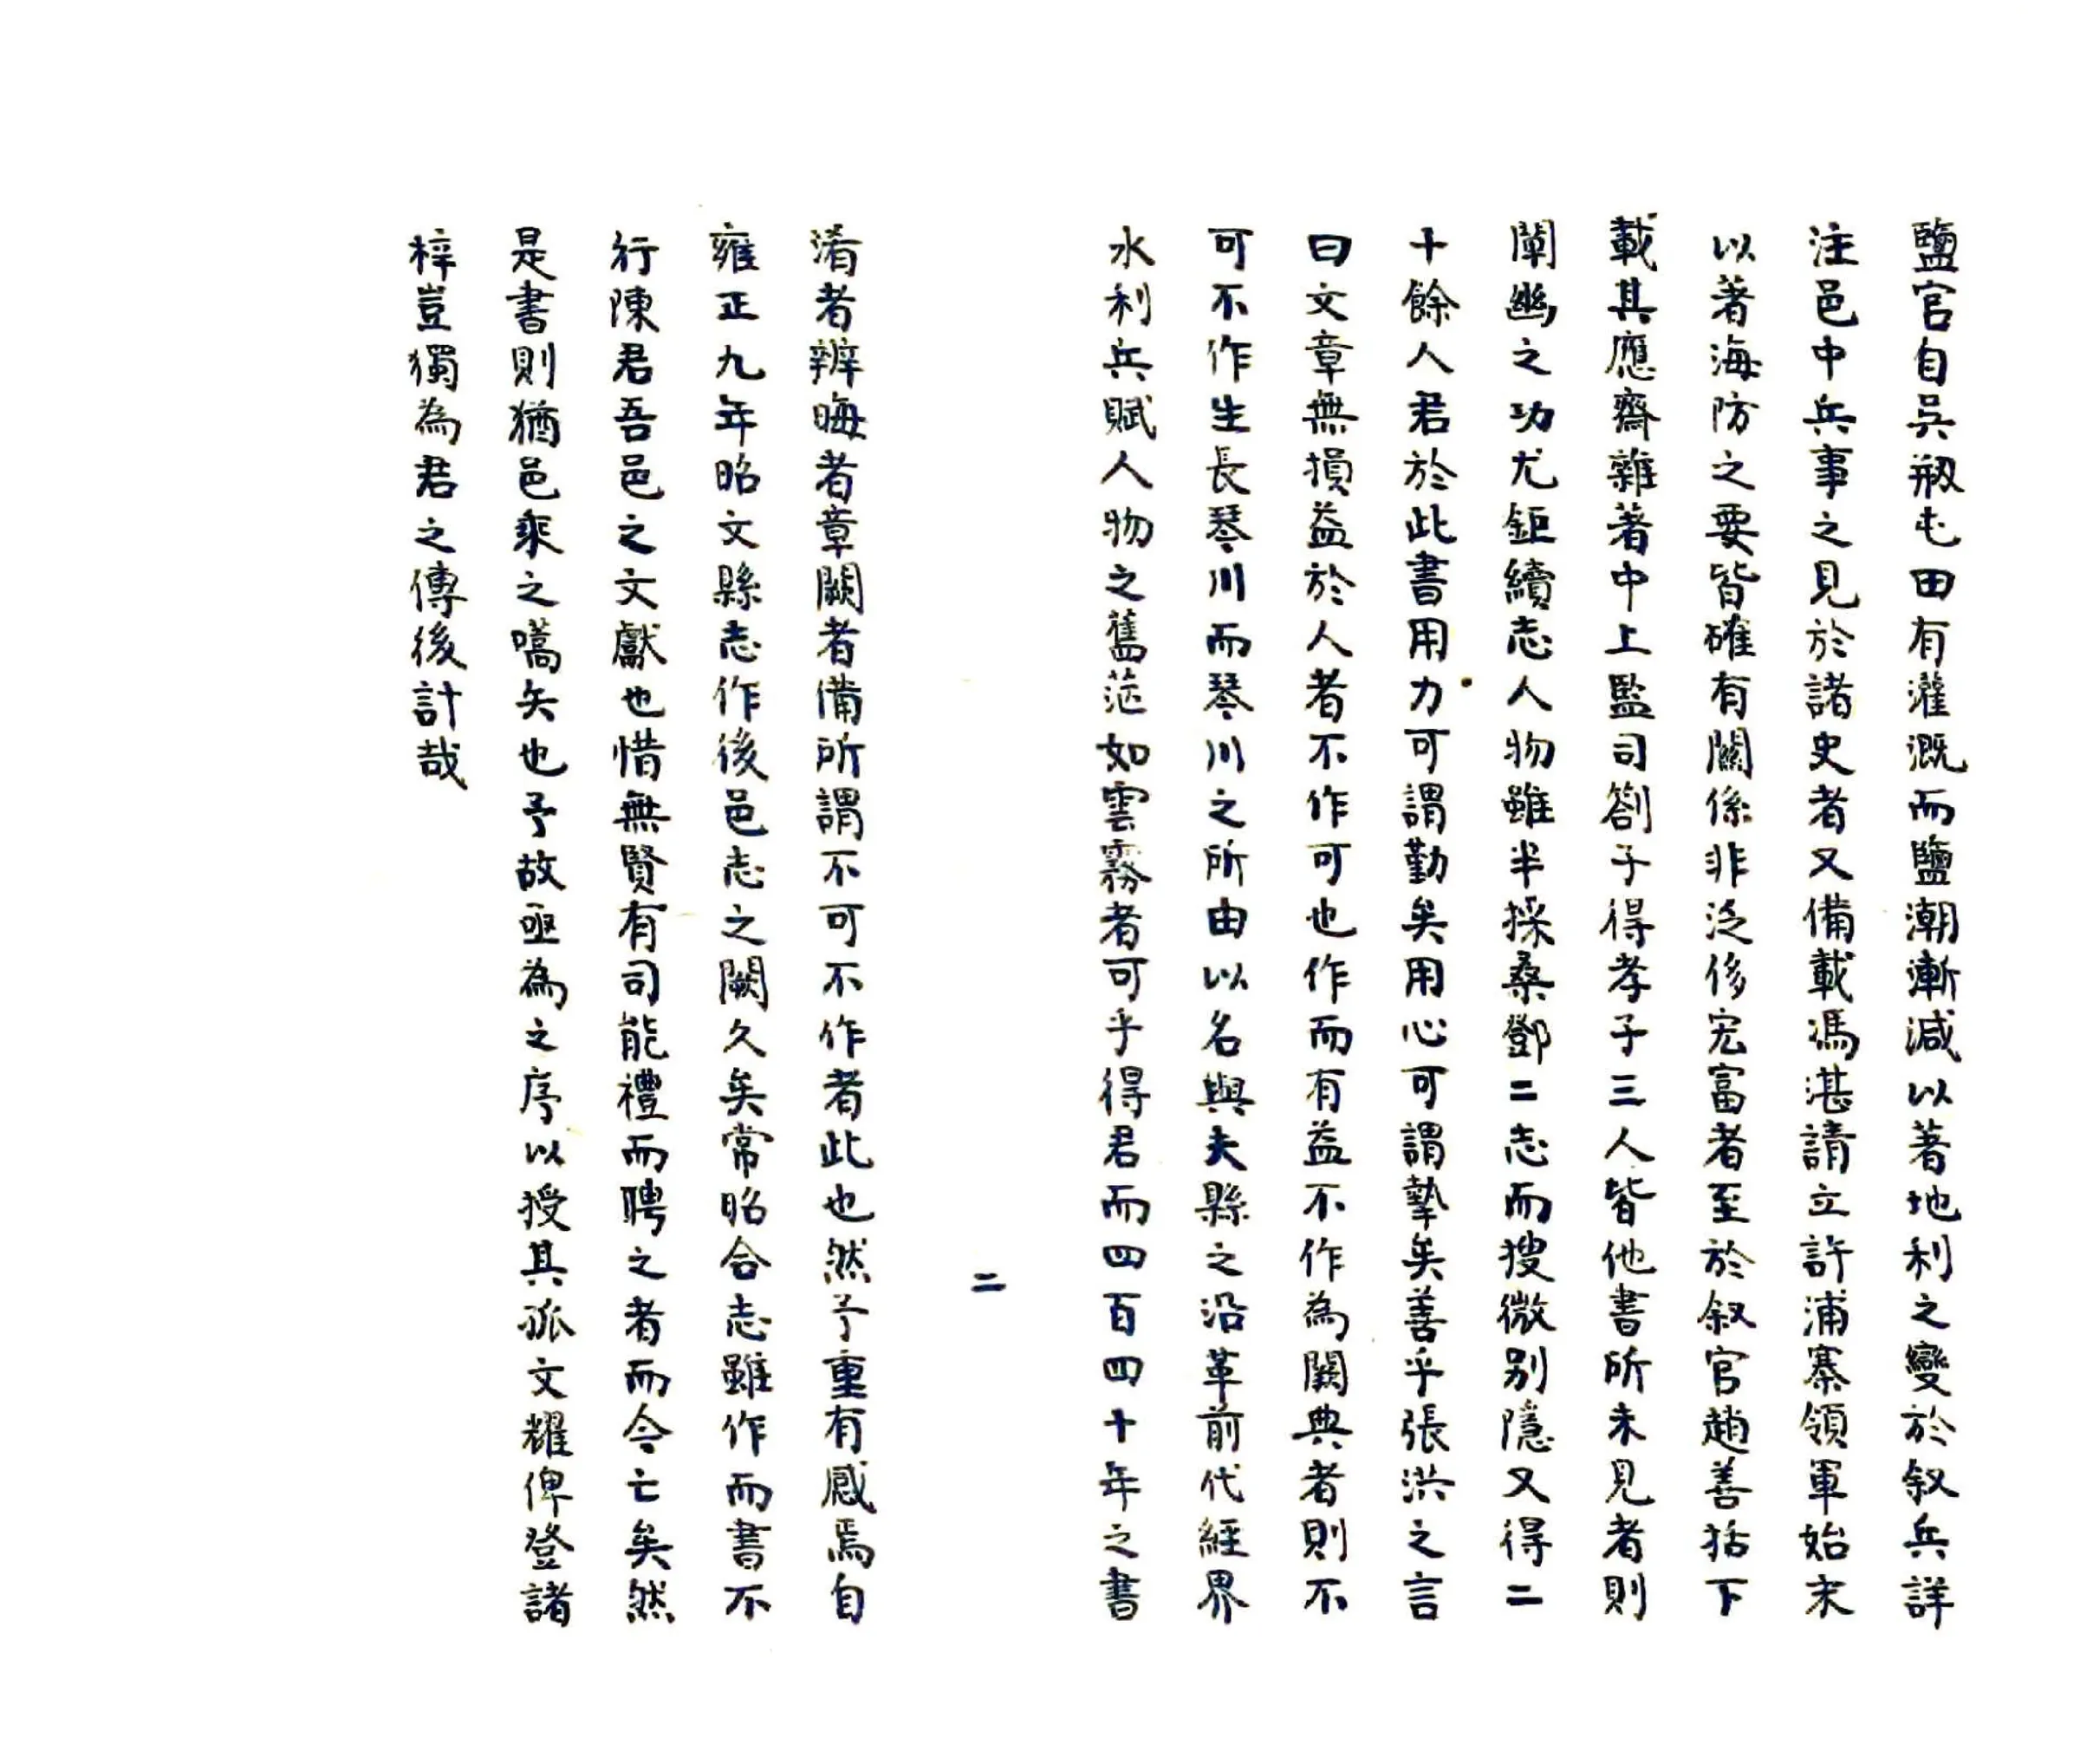 鹽官自吳剏屯田有灌溉而鹽潮漸減以著地利之變於叙兵詳
注邑中兵事之見於諸史者又備載馮湛請立許浦寨領軍始末
以著海防之要皆確有關係非泛侈宏富者至於叙官趙善括下
載其應齋雜著中上監司劄子得孝子三人皆他書所未見者則
闡幽之功尤鉅續志人物雖半採桑鄧二志而搜微别隱又得二
十餘人君於此書用力可謂勤矣用心可謂摯矣善乎張洪之言
曰文章無損益於人者不作可也作而有益不作為闕典者則不
可不作生長琴川而琴川之所由以名與夫縣之沿革前代經界
水利兵賦人物之舊茫如雲霧者可乎得君而四百四十年之書
二
淆者辨晦者章闕者備所謂不可不作者此也然予重有感焉自
雍正九年昭文縣志作後邑志之闕久矣常昭合志雖作而書不
行陳君吾邑之文獻也惜無賢有司能禮而聘之者而今亡矣然
是書則猶邑乘之嚆矢也予故亟為之序以授其孤文耀俾登諸
梓豈獨為君之傳後計哉